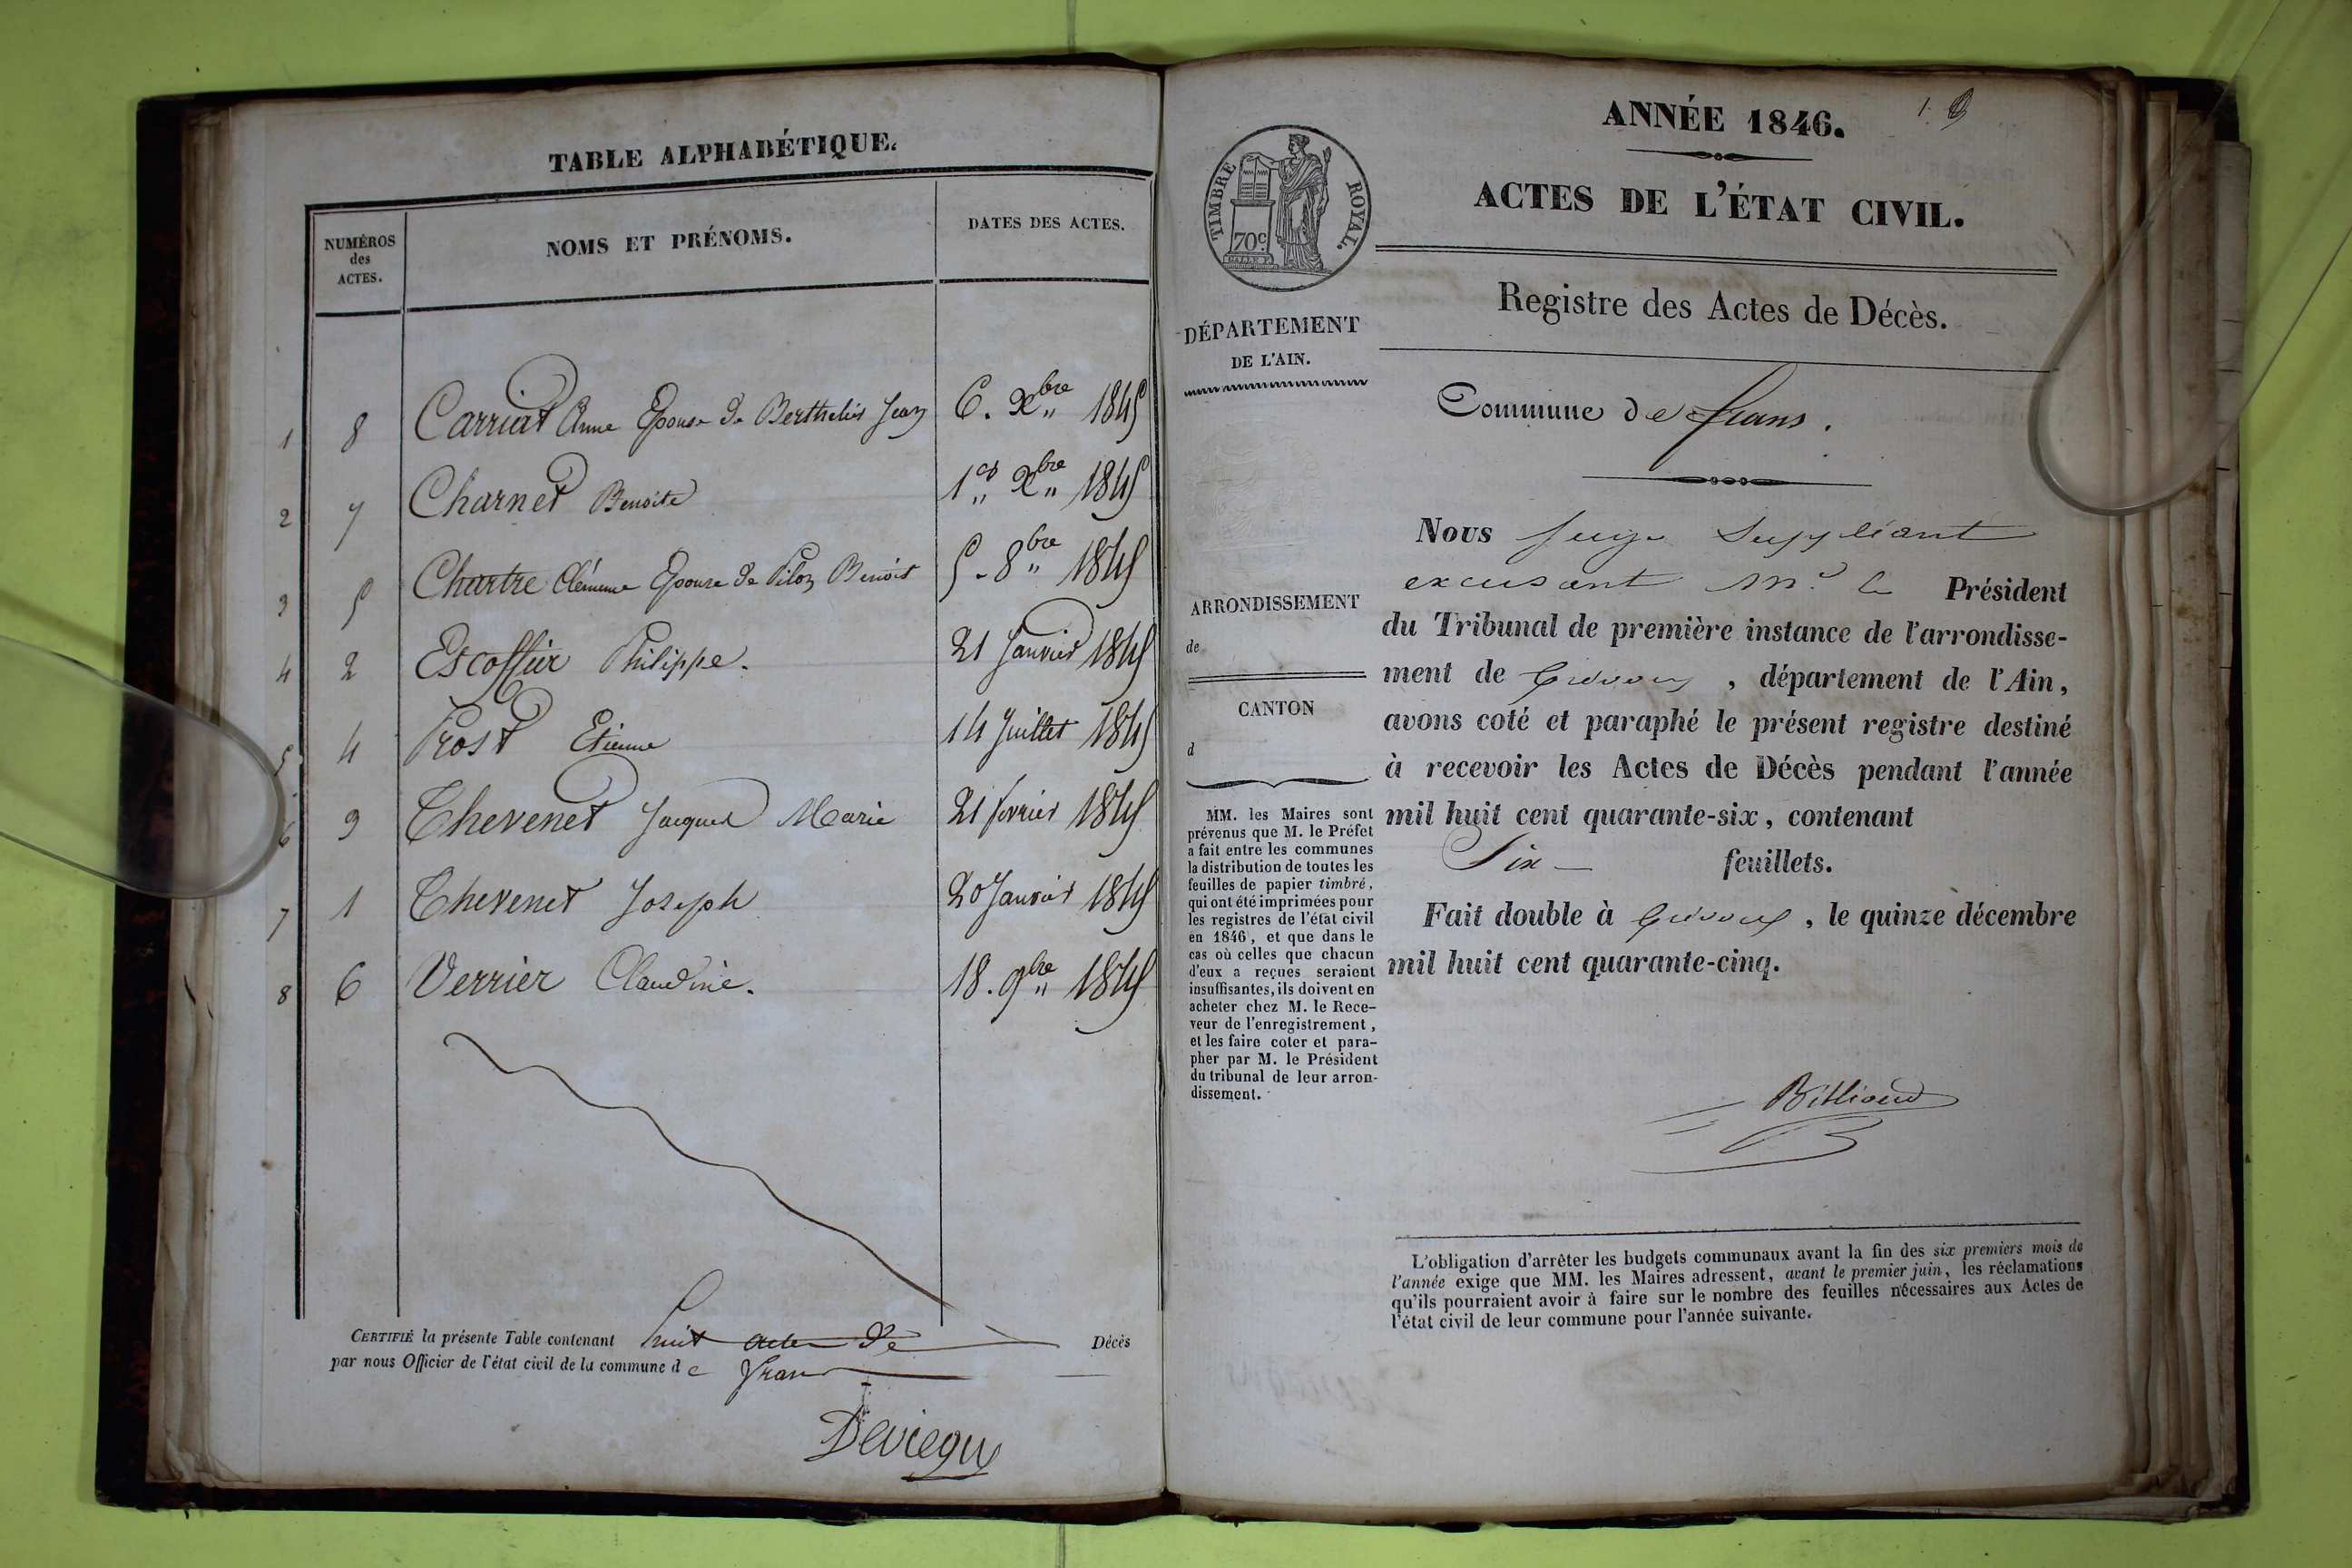 TABLE ALPHABÉTIQUE.
NUMÉROS
des
ACTES.
NOMS ET PRÉNOMS.
DATES DES ACTES.
1 8 Carriat Anne Epouse de Berthelier Jean 6. Xbre 1845
2 7 Charnet Benoite 1er Xbre 1845
3 5 Chartre Clémence Epouse de Pilon Benoit 5. 8bre 1845
4 2 Escoffier Philippe. 21 Janvier 1845
5 4 Prost Etienne 14 Juillet 1845
6 3 Thevenet Jacques Marie 21 fevrier 1845
7 1 Thevenet Joseph 20 Janvier 1845
8 6 Verrier Claudine. 18. 9bre 1845
CERTIFIÉ la présente Table contenant huit actes de Décès
par nous Officier de l'état civil de la commune de frans
ANNÉE 1846.
TIMBRE ROYAL.
70 c.
ACTES DE L'ÉTAT CIVIL.
Registre des Actes de Décès.
DÉPARTEMENT
DE L'AIN.
Commune de frans.
ARRONDISSEMENT
de
CANTON
d
MM. les Maires sont
prévenus que M. le Préfet
a fait entre les communes
la distribution de toutes les
feuilles de papier timbré,
qui ont été imprimées pour
les registres de l'état civil
en 1846, et que dans le
cas où celles que chacun
d'eux a reçues seraient
insuffisantes, ils doivent en
acheter chez M. le Rece-
veur de l'enregistrement,
et les faire coter et para-
pher par M. le Président
du tribunal de leur arron-
dissement.
Nous Juge Suppléant
excusant Mr. le Président
du Tribunal de première instance de l'arrondisse-
ment de Trévoux, département de l'Ain,
avons coté et paraphé le présent registre destiné
à recevoir les Actes de Décès pendant l'année
mil huit cent quarante-six, contenant
Six feuillets.
Fait double à Trévoux, le quinze décembre
mil huit cent quarante-cinq.
L'obligation d'arrêter les budgets communaux avant la fin des six premiers mois de
l'année exige que MM. les Maires adressent, avant le premier juin, les réclamations
qu'ils pourraient avoir à faire sur le nombre des feuilles nécessaires aux Actes de
l'état civil de leur commune pour l'année suivante.